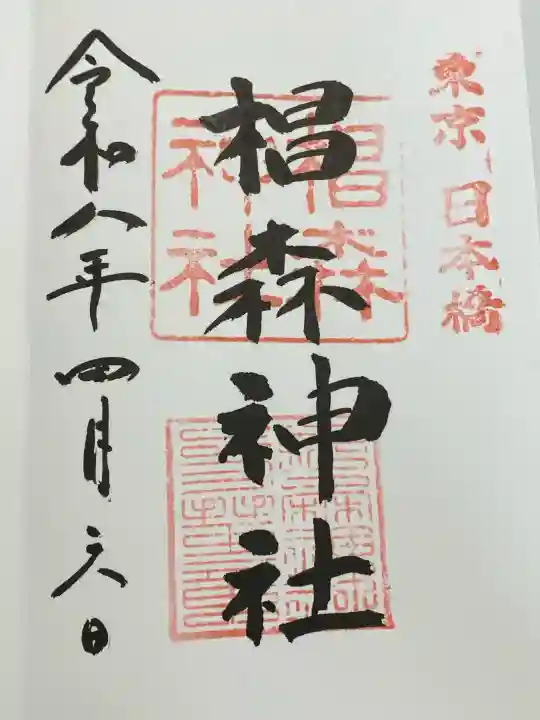 東京 日本橋
椙森神社
椙森
神社
令和八年四月六日